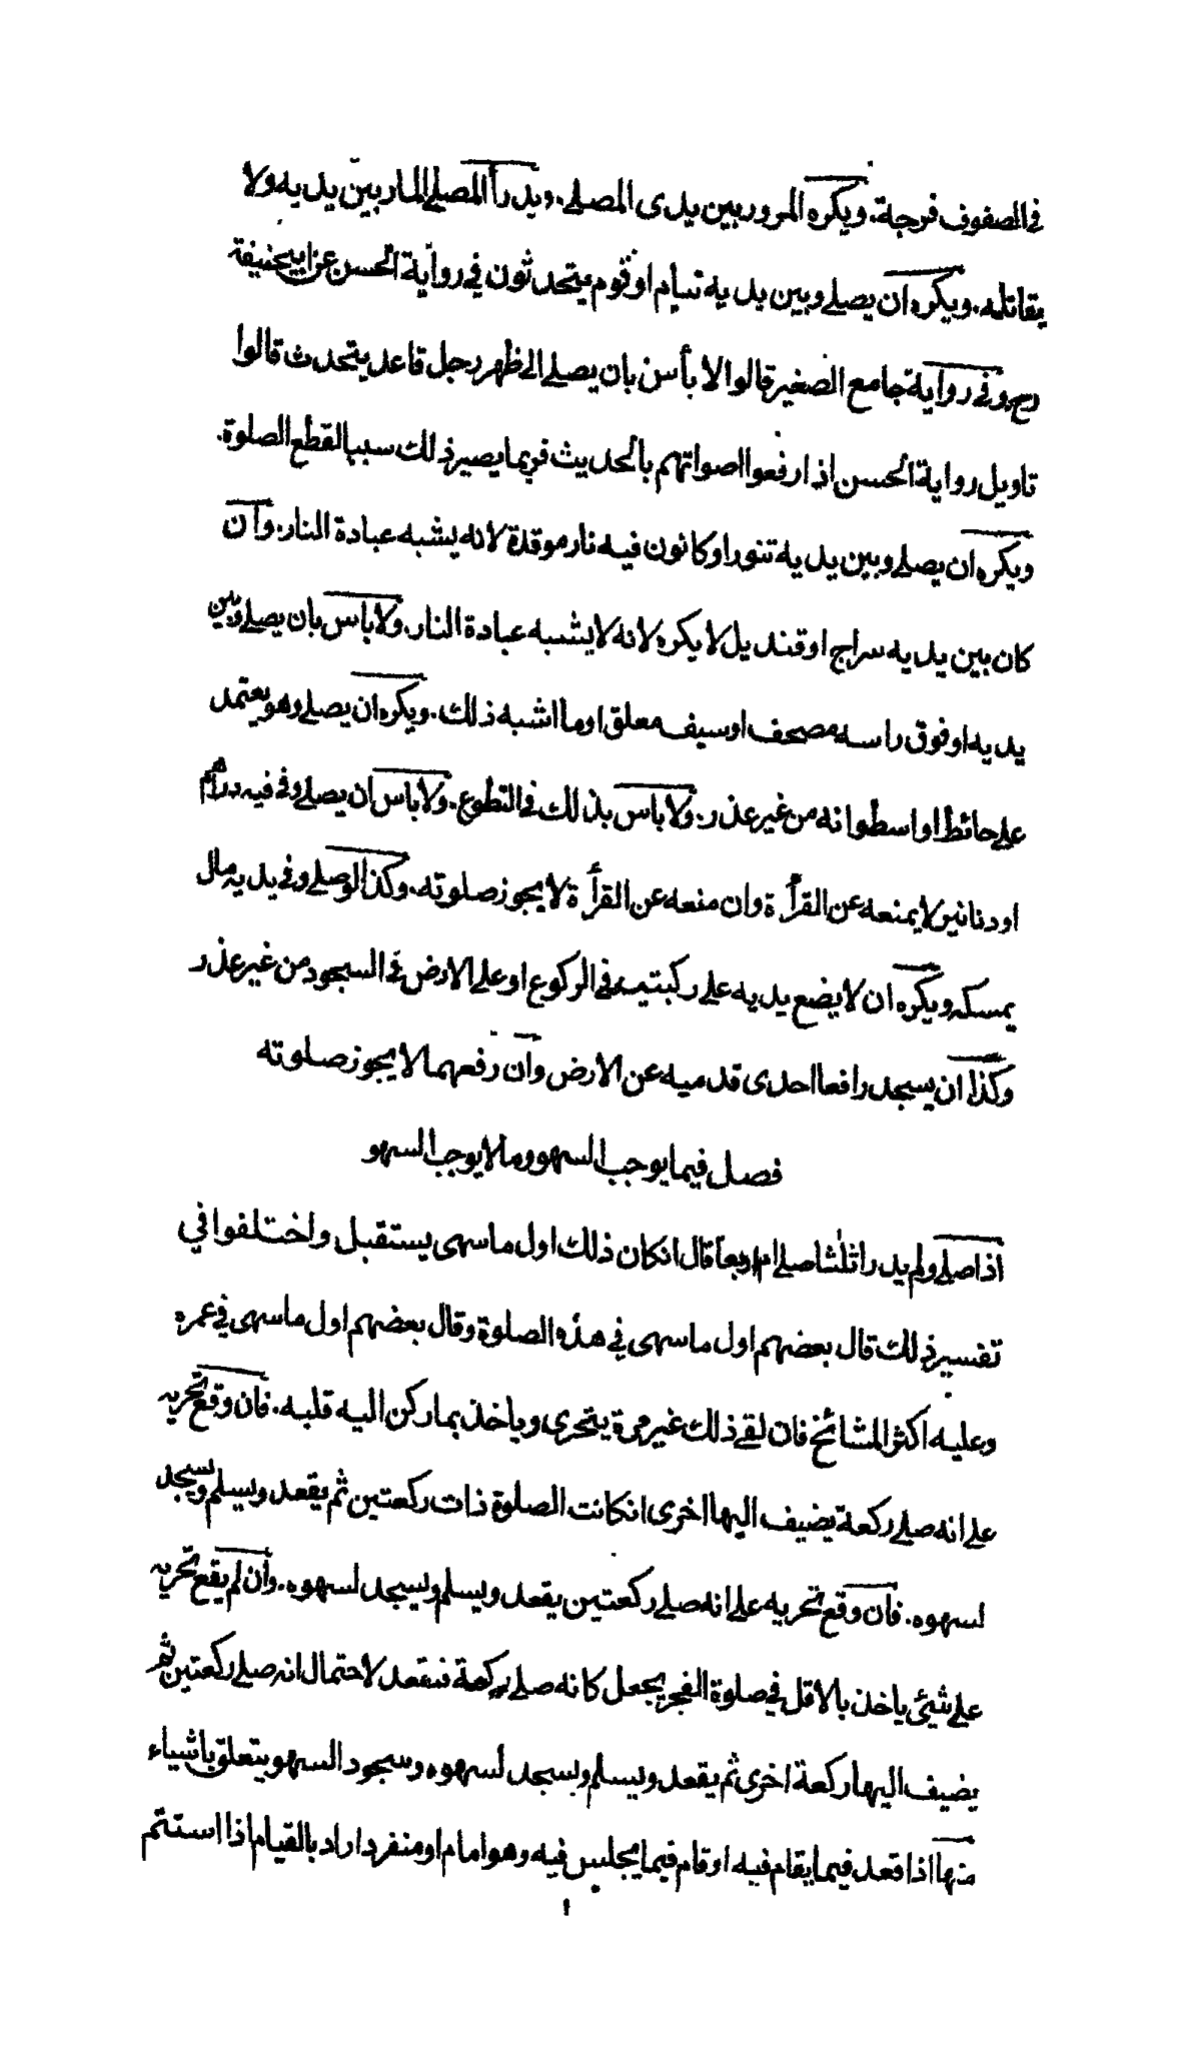 في الصفوف فرجة. ويكره المرور بين يدى المصلے. ويدرأ المصلے المار بين يديه ولا
يقاتله. ويكره ان يصلے وبين يديه نيام او قوم يتحدثون في رواية الحسن عن ابيحنيفة
رح وفى رواية جامع الصغير قالوا لا بأس بان يصلے الى ظهر رجل قاعد يتحدث قالوا
تاويل رواية الحسن اذا رفعوا اصواتهم بالحديث فربما يصير ذلك سببا لقطع الصلوة.
ويكره ان يصلے وبين يديه تنور او كانون فيه نار موقدة لانه يشبه عبادة النار. وان
كان بين يديه سراج او قنديل لا يكره لانه لا يشبه عبادة النار. ولا باس بان يصلے وبين
يديه او فوق راسه مصحف او سيف معلق او ما اشبه ذلك. ويكره ان يصلے وهو يعتمد
علے حائط او اسطوانه من غير عذر. ولا باس بذلك في التطوع. ولا باس ان يصلے وفى فيه دراهم
او دنانير لا يمنعه عن القرأة وان منعه عن القرأة لا يجوز صلوته. وكذا لو صلے وفى يديه مال
يمسكه ويكره ان لا يضع يديه علے ركبتيه في الركوع او علے الارض فى السجود من غير عذر
وكذا ان يسجد رافعا احدى قدميه عن الارض وان رفعهما لا يجوز صلوته
فصل فيما يوجب السهو وما لا يوجب السهو
اذا صلے ولم يدر اثلثا صلے ام اربعا قال انكان ذلك اول ما سهى يستقبل واختلفوا في
تفسير ذلك قال بعضهم اول ما سهى في هذه الصلوة وقال بعضهم اول ما سهى في عمره
وعليه اكثر المشائخ فان لقے ذلك غير مرة يتحرى وياخذ بما ركن اليه قلبه. فان وقع تحريه
علے انه صلے ركعة يضيف اليها اخرى انكانت الصلوة ذات ركعتين ثم يقعد ويسلم ويسجد
لسهوه. فان وقع تحريه علے انه صلے ركعتين يقعد ويسلم ويسجد لسهوه. وان لم يقع تحريه
علے شيئ ياخذ بالاقل في صلوة الفجر يجعل كانه صلے ركعة فيقعد لاحتمال انه صلے ركعتين ثم
يضيف اليها ركعة اخرى ثم يقعد ويسلم ويسجد لسهوه وسجود السهو يتعلق باشياء
منها اذا قعد فيما يقام فيه او قام فيما يجلس فيه وهو امام او منفرد اراد بالقيام اذا استتم